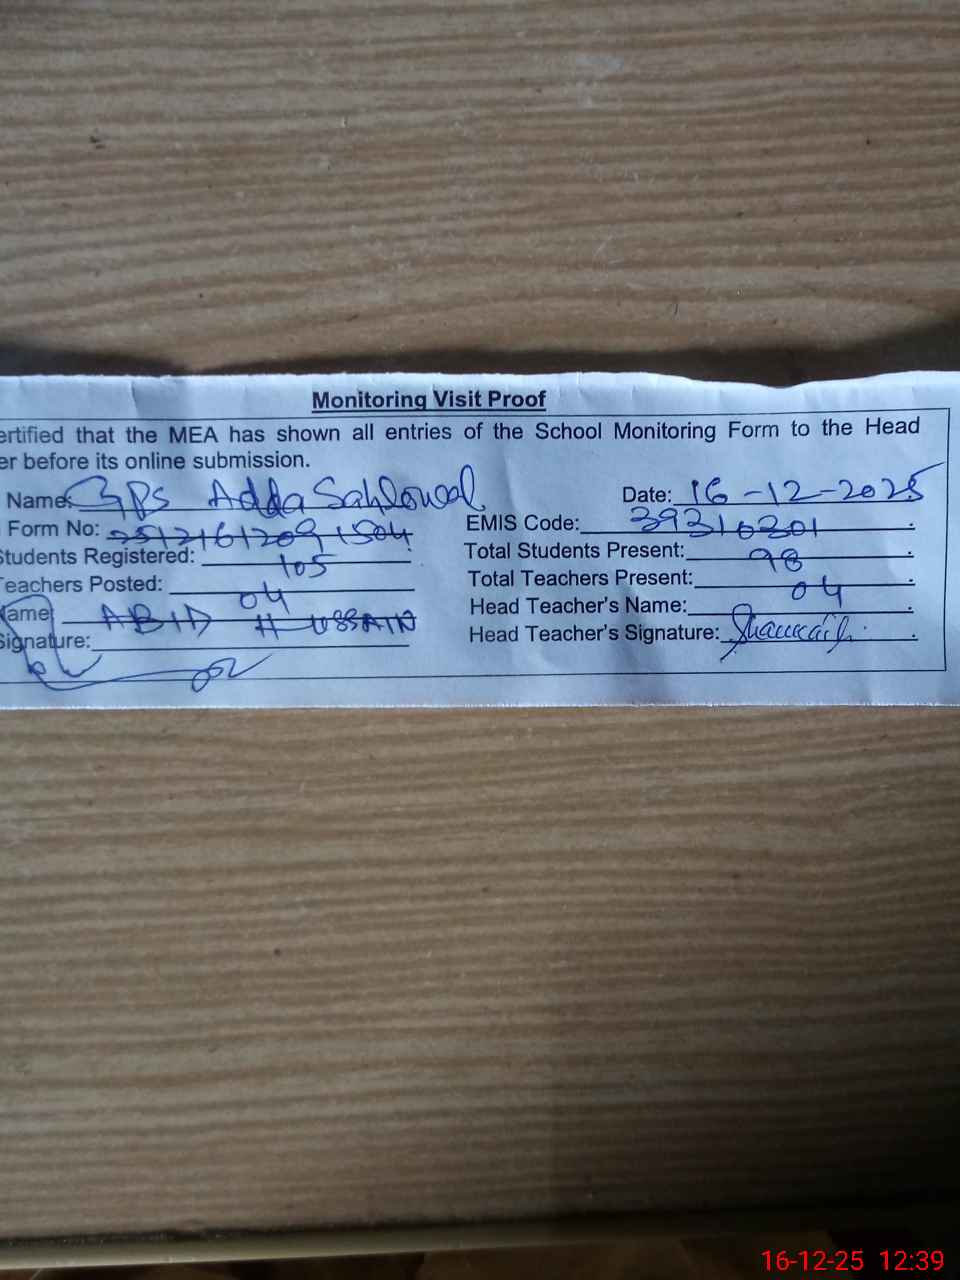 Monitoring Visit Proof
ertified that the MEA has shown all entries of the School Monitoring Form to the Head
er before its online submission.
Name: GPS Adda Sahlowal Date: 16-12-2025
Form No: 2512161209 1504 EMIS Code: 39310301
Students Registered: 105 Total Students Present: 98
Teachers Posted: 04 Total Teachers Present: 04
Name: ABID HUSSAIN Head Teacher's Name:
Signature: Head Teacher's Signature:
16-12-25 12:39